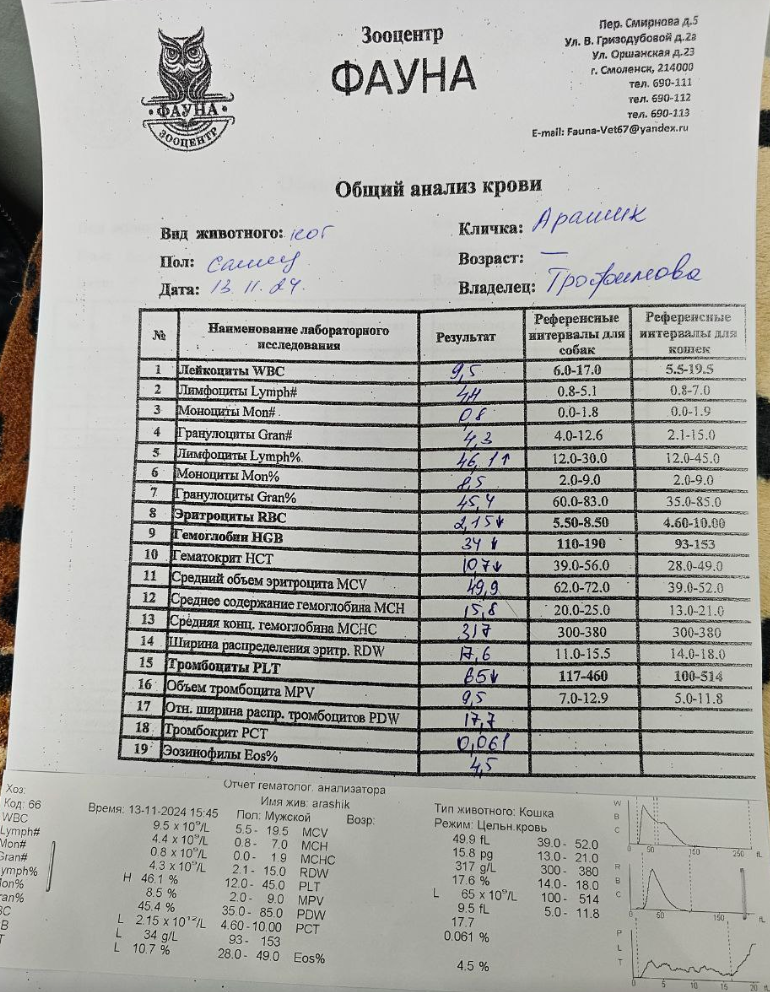 ФАУНА
ЗООЦЕНТР
Зооцентр
ФАУНА
Пер. Смирнова д.5
Ул. В. Гризодубовой д.2а
Ул. Оршанская д.23
г. Смоленск, 214000
тел. 690-111
тел. 690-112
тел. 690-113
E-mail: Fauna-Vet67@yandex.ru
Общий анализ крови
Вид животного: кот
Кличка: Арашик
Пол: самец
Возраст: —
Дата: 13.11.24
Владелец: Трофимова
№ Наименование лабораторного исследования Результат Референсные интервалы для собак Референсные интервалы для кошек
1 Лейкоциты WBC 9,5 6.0-17.0 5.5-19.5
2 Лимфоциты Lymph# 4,4 0.8-5.1 0.8-7.0
3 Моноциты Mon# 0,8 0.0-1.8 0.0-1.9
4 Гранулоциты Gran# 4,3 4.0-12.6 2.1-15.0
5 Лимфоциты Lymph% 46,1↑ 12.0-30.0 12.0-45.0
6 Моноциты Mon% 8,5 2.0-9.0 2.0-9.0
7 Гранулоциты Gran% 45,4 60.0-83.0 35.0-85.0
8 Эритроциты RBC 2,15↓ 5.50-8.50 4.60-10.00
9 Гемоглобин HGB 34↓ 110-190 93-153
10 Гематокрит HCT 10,7↓ 39.0-56.0 28.0-49.0
11 Средний объем эритроцита MCV 49,9 62.0-72.0 39.0-52.0
12 Среднее содержание гемоглобина MCH 15,8 20.0-25.0 13.0-21.0
13 Средняя конц. гемоглобина MCHC 317 300-380 300-380
14 Ширина распределения эритр. RDW 17,6 11.0-15.5 14.0-18.0
15 Тромбоциты PLT 65↓ 117-460 100-514
16 Объем тромбоцита MPV 9,5 7.0-12.9 5.0-11.8
17 Отн. ширина распр. тромбоцитов PDW 17,7
18 Тромбокрит PCT 0,061
19 Эозинофилы Eos% 4,5
Отчет гематолог. анализатора
Хоз:
Имя жив: arashik
Код: 66
Время: 13-11-2024 15:45
Пол: Мужской
Возр:
Тип животного: Кошка
Режим: Цельн.кровь
WBC 9.5 x 10^9/L 5.5 - 19.5 MCV 49.9 fL 39.0 - 52.0
Lymph# 4.4 x 10^9/L 0.8 - 7.0 MCH 15.8 pg 13.0 - 21.0
Mon# 0.8 x 10^9/L 0.0 - 1.9 MCHC 317 g/L 300 - 380
Gran# 4.3 x 10^9/L 2.1 - 15.0 RDW 17.6 % 14.0 - 18.0
ymph% H 46.1 % 12.0 - 45.0 PLT L 65 x 10^9/L 100 - 514
on% 8.5 % 2.0 - 9.0 MPV 9.5 fL 5.0 - 11.8
ran% 45.4 % 35.0 - 85.0 PDW 17.7
BC L 2.15 x 10^12/L 4.60 - 10.00 PCT 0.061 %
B L 34 g/L 93 - 153
T L 10.7 % 28.0 - 49.0 Eos% 4.5 %
WBC
50 150 250 fL
RBC
50 150 fL
PLT
0 5 10 15 20 fL